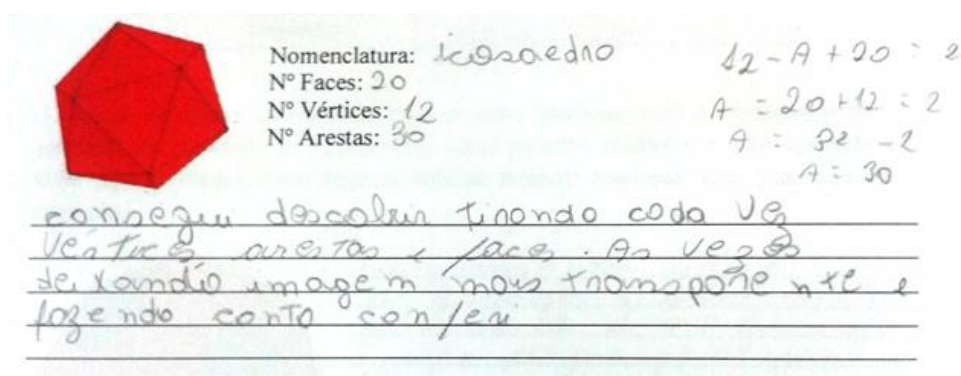 Nomenclatura: icosaedro
Nº Faces: 20
Nº Vértices: 12
Nº Arestas: 30
12 - A + 20 = 2
A = 20 + 12 = 2
A = 32 - 2
A = 30
consegui descobrir tirando coda vez
Vértices arestas e faces. As vezes
deixando imagem mais transparente e
fazendo conta conferi